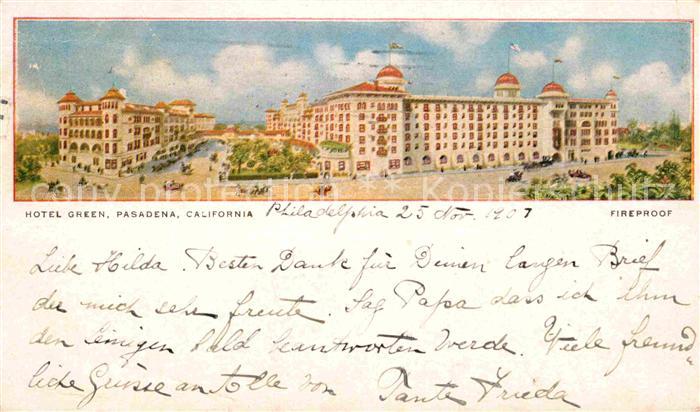 copy protection ** Kopierschutz
HOTEL GREEN, PASADENA, CALIFORNIA Philadelphia 25 Nov. 1907 FIREPROOF
Liebe Hilda. Besten Dank für Deinen langen Brief
der mich sehr freute. Sag Papa dass ich ihm
den Seinigen bald beantworten werde. Viele freund„
liche Grüsse an Alle von Tante Frieda